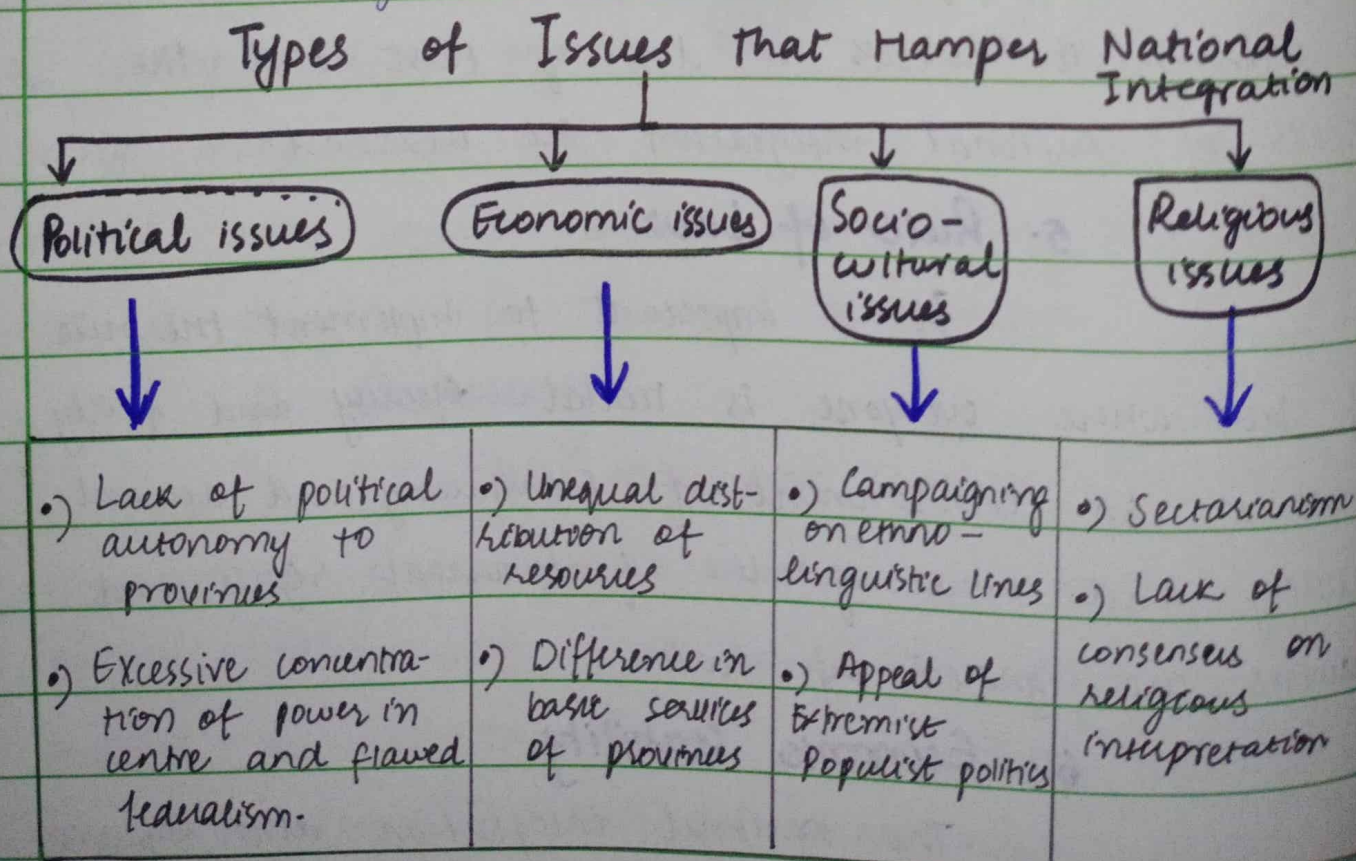 Types of Issues that Hamper National
Integration
Political issues
Economic issues
Socio-
cultural
issues
Religious
issues
•) Lack of political
autonomy to
provinces
•) Excessive concentra-
tion of power in
centre and flawed
fedralism.
•) Unequal dist-
ribution of
resources
•) Difference in
basic services
of provinces
•) Campaigning
on ethno-
linguistic lines
•) Appeal of
Extremist
Populist politics
•) Sectarianism
•) Lack of
consensus on
religious
interpretation